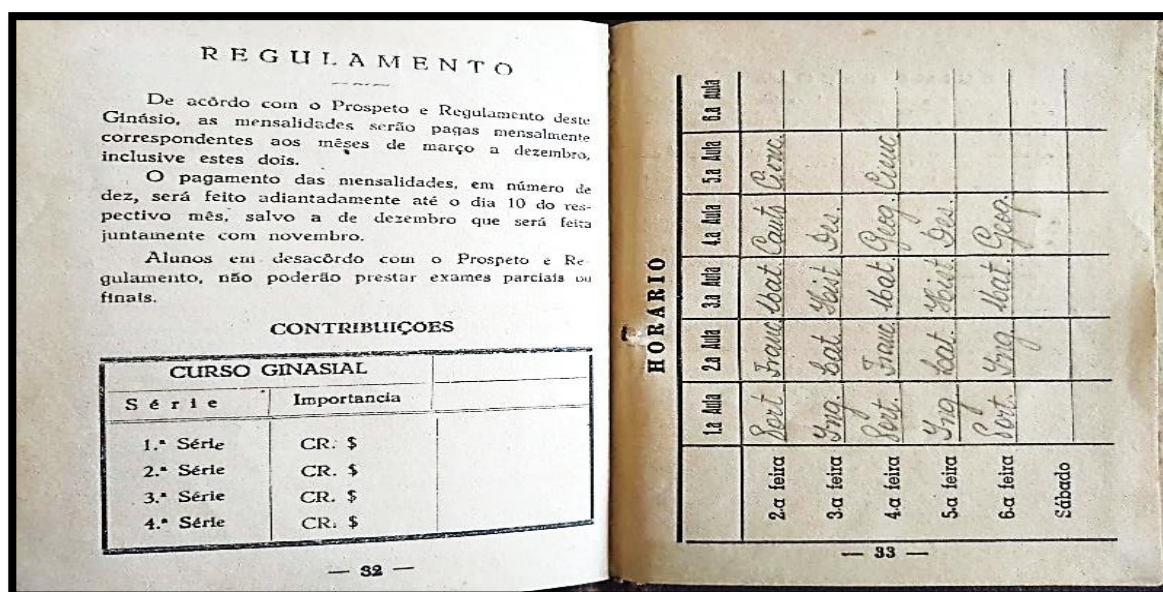 REGULAMENTO
De acôrdo com o Prospeto e Regulamento deste
Ginásio, as mensalidades serão pagas mensalmente
correspondentes aos mêses de março a dezembro,
inclusive estes dois.
O pagamento das mensalidades, em número de
dez, será feito adiantadamente até o dia 10 do res-
pectivo mês, salvo a de dezembro que será feita
juntamente com novembro.
Alunos em desacôrdo com o Prospeto e Re-
gulamento, não poderão prestar exames parciais ou
finais.
CONTRIBUIÇOES
CURSO GINASIAL
Série Importancia
1.ª Série CR. $
2.ª Série CR. $
3.ª Série CR. $
4.ª Série CR. $
— 32 —
HORARIO
1.a Aula 2.a Aula 3.a Aula 4.a Aula 5.a Aula 6.a Aula
2.a feira Port Franc Mat. Canto Cienc.
3.a feira Ing. Lat. Hist Des.
4.a feira Port. Franc Mat. Geog. Cienc
5.a feira Ing. Lat. Hist. Des.
6.a feira Port. Ing. Mat. Geog.
Sábado
— 33 —